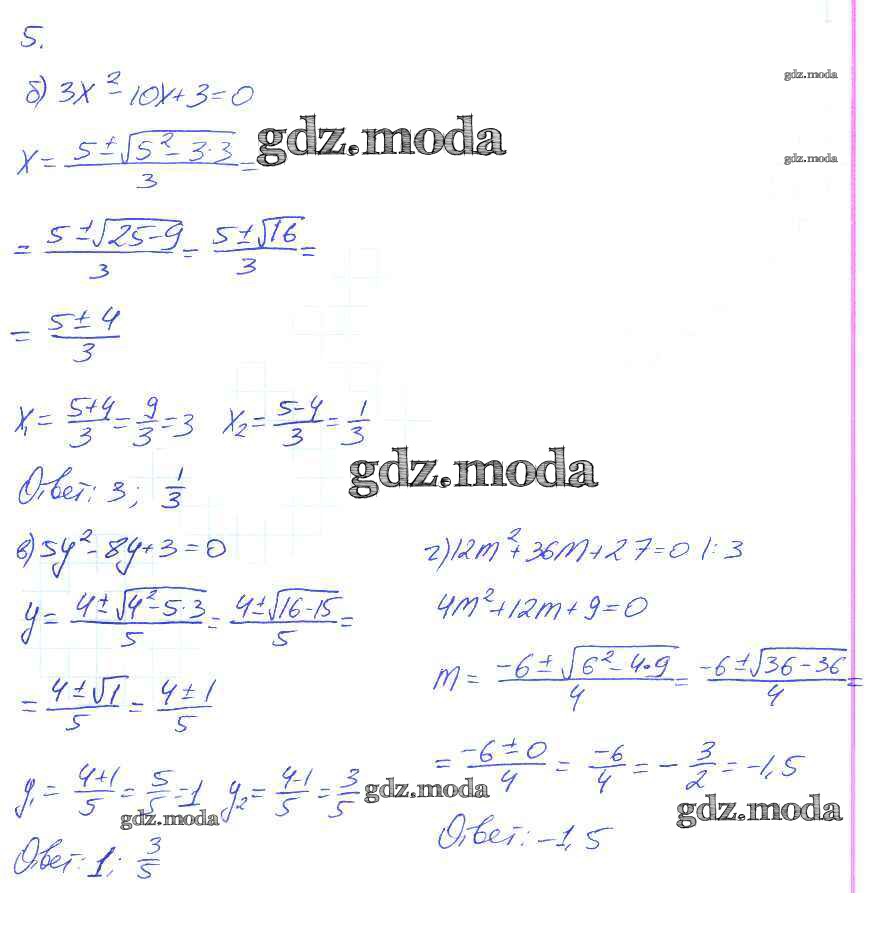 5.
б) 3x² - 10x + 3 = 0
gdz.moda
gdz.moda
x = (5 ± √(5² - 3·3))/3 =
gdz.moda
= (5 ± √(25 - 9))/3 = (5 ± √16)/3 =
= (5 ± 4)/3
x₁ = (5+4)/3 = 9/3 = 3 x₂ = (5-4)/3 = 1/3
gdz.moda
Ответ: 3; 1/3
в) 5y² - 8y + 3 = 0
y = (4 ± √(4² - 5·3))/5 = (4 ± √(16 - 15))/5 =
= (4 ± √1)/5 = (4 ± 1)/5
y₁ = (4+1)/5 = 5/5 = 1 y₂ = (4-1)/5 = 3/5
gdz.moda
gdz.moda
Ответ: 1; 3/5
г) 12m² + 36m + 27 = 0 |: 3
4m² + 12m + 9 = 0
m = (-6 ± √(6² - 4·9))/4 = (-6 ± √(36 - 36))/4 =
= (-6 ± 0)/4 = -6/4 = -3/2 = -1,5
gdz.moda
Ответ: -1,5